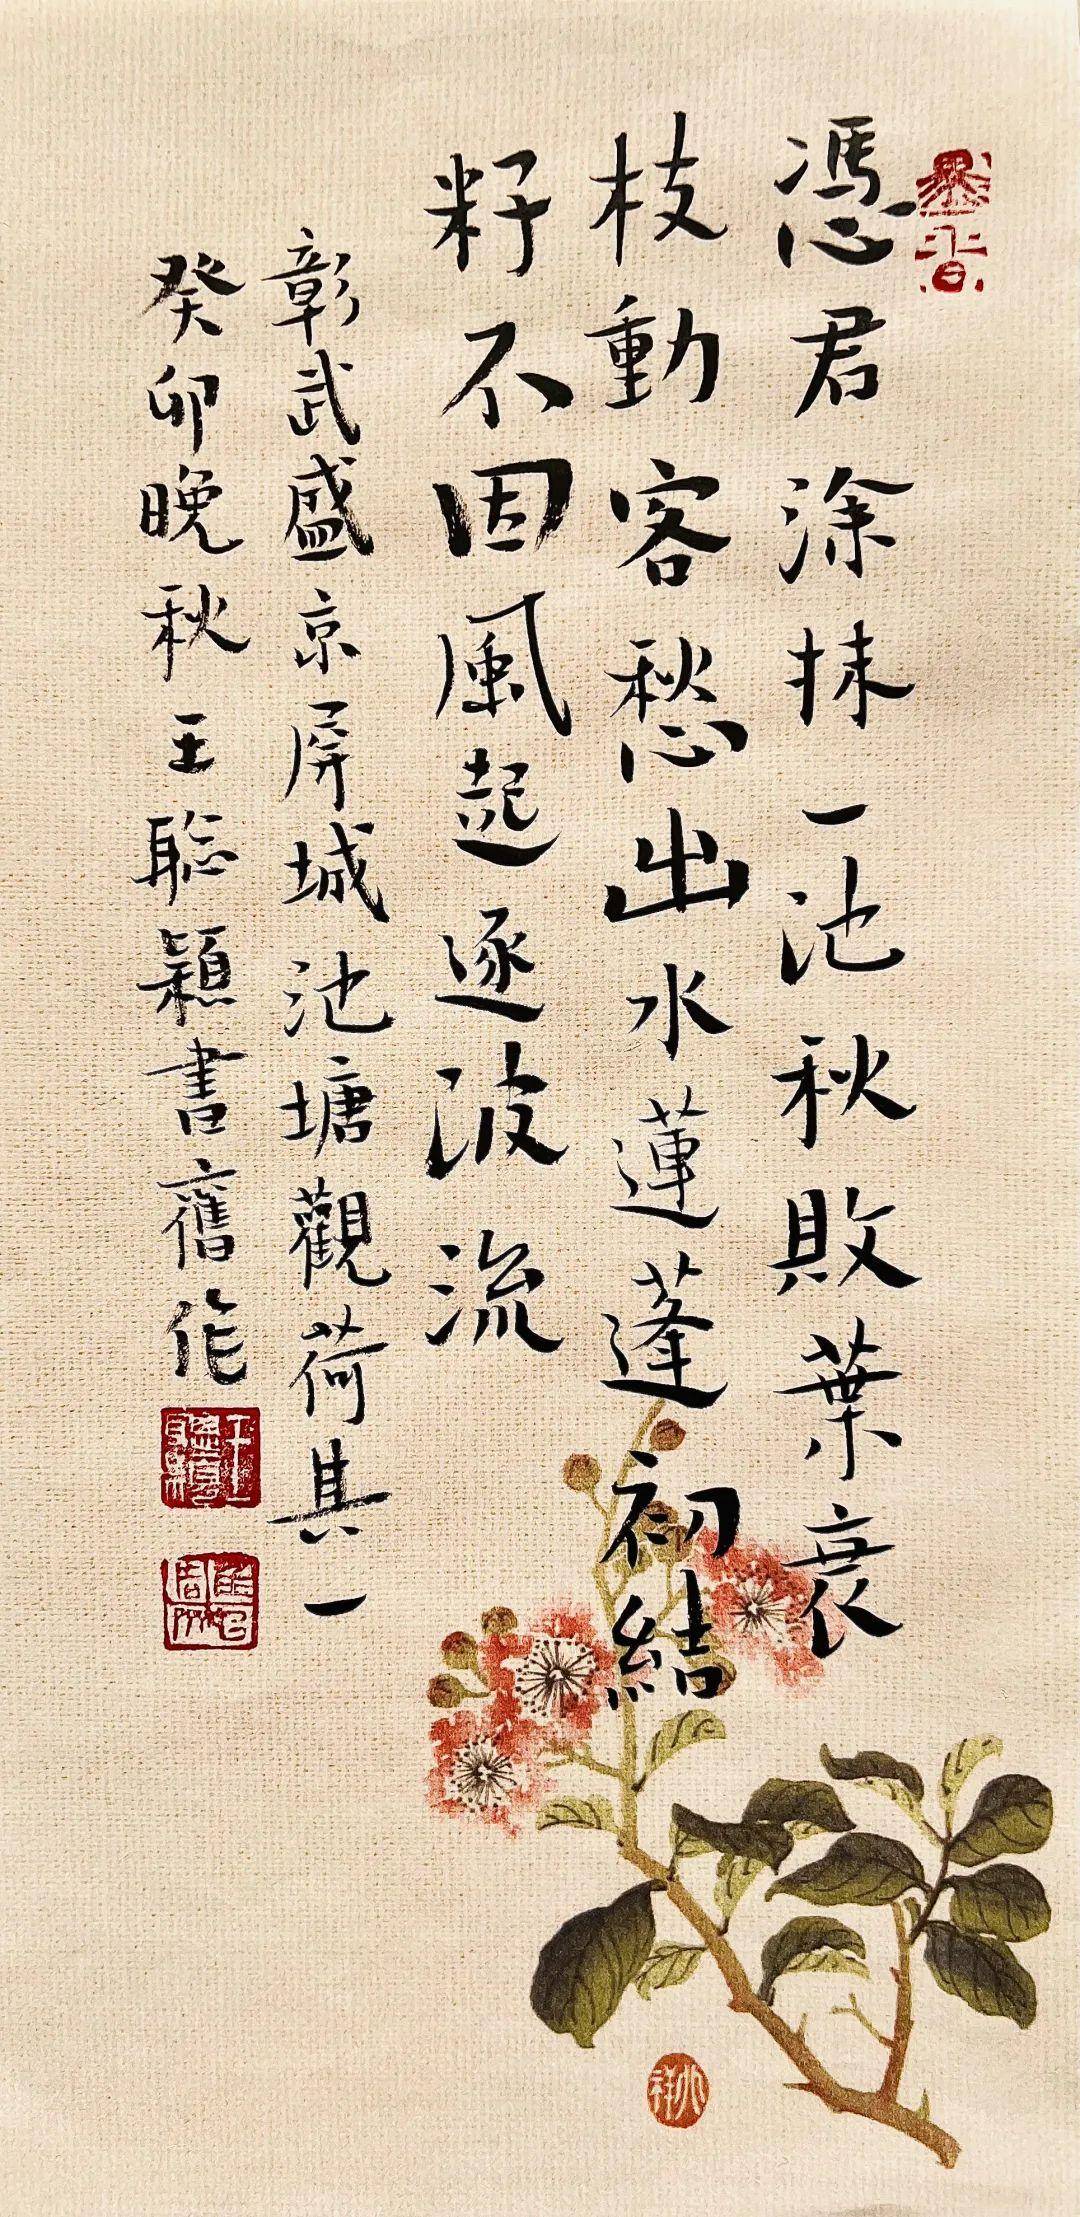 憑君涂抹一池秋敗葉衰
枝動客愁出水蓮蓬初結
籽不因風起逐波流
彰武盛京屏城池塘觀荷其一
癸卯晚秋王聪穎書舊作
墨香